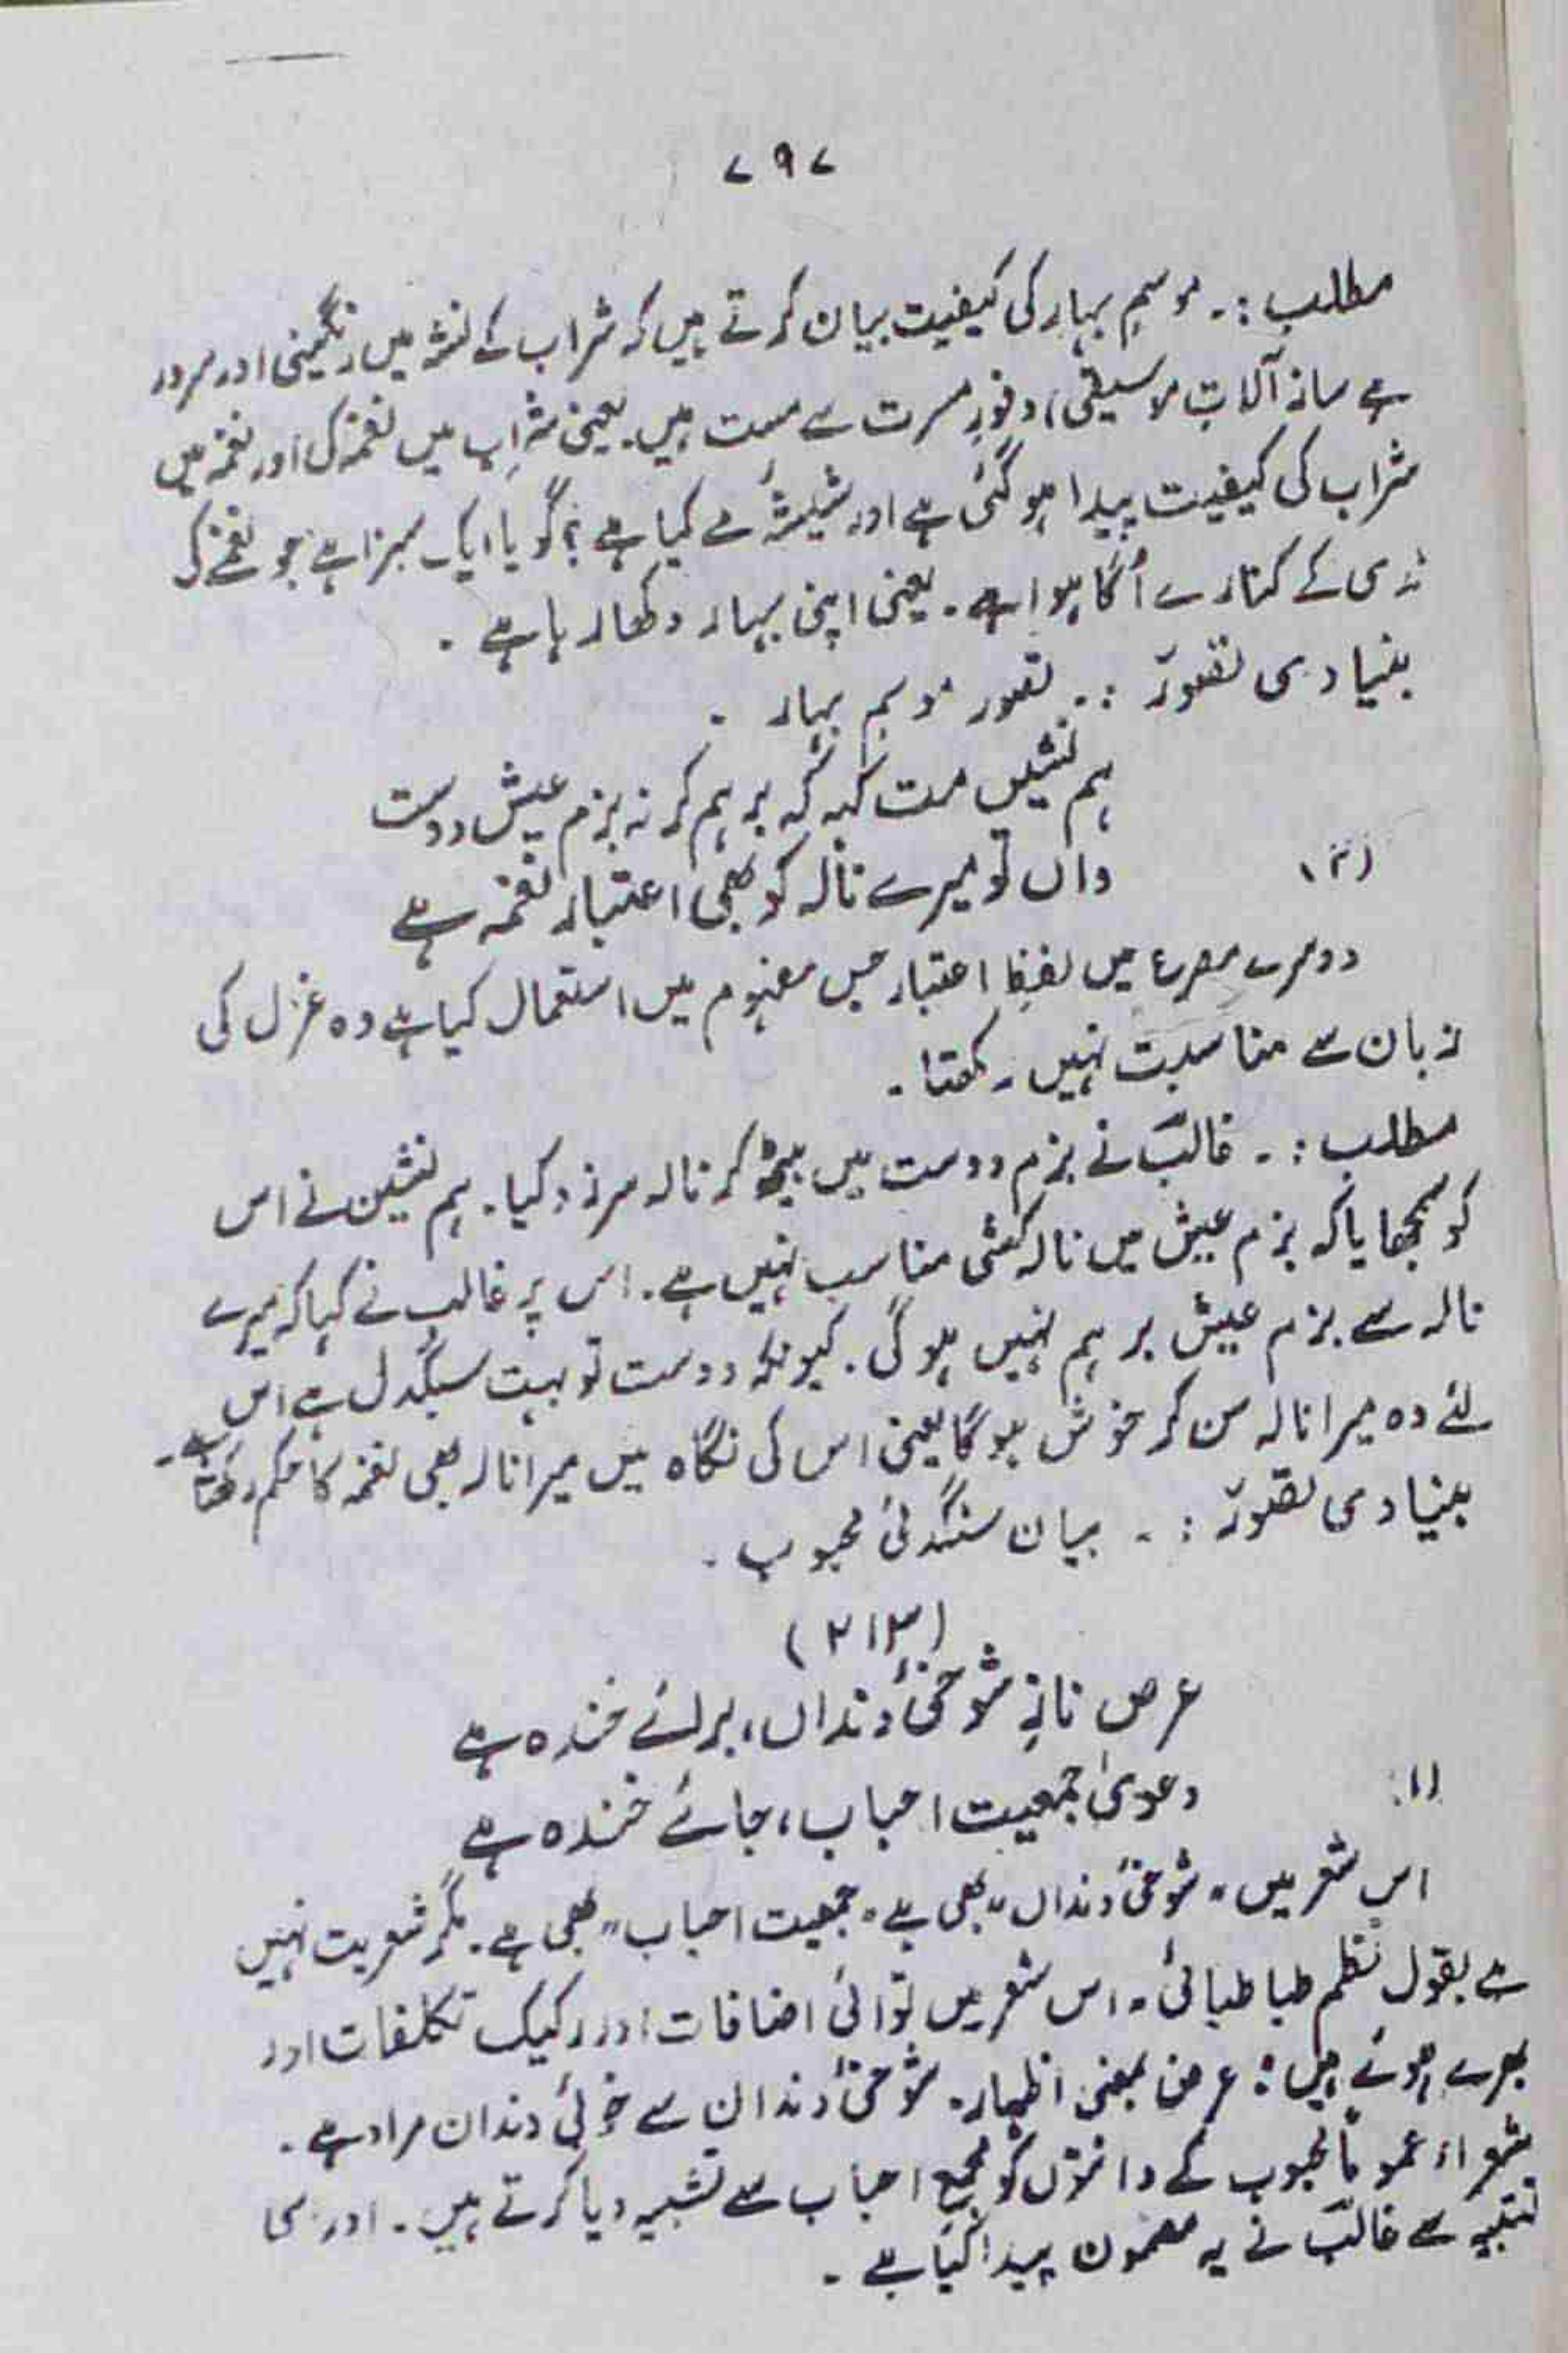 ۷۹۷
مطلب :۔ موسمِ بہار کی کیفیت بیان کرتے ہیں کہ شراب کے نشہ میں رنگینی اور سرور
ہے ساز آلاتِ موسیقی، وفورِ مسرت سے مست ہیں۔ یعنی شراب میں نغمہ کی اور نغمہ میں
شراب کی کیفیت پیدا ہو گئی ہے اور شیشۂ مے کیا ہے؟ گویا ایک سبزا ہے جو نغمے کی
ندی کے کنارے اُگا ہوا ہے۔ یعنی اپنی بہار دکھا رہا ہے۔
بنیادی تصوّر :۔ تصور موسمِ بہار ۔
ہم نشیں مت کہہ کہ برہم کر نہ بزمِ عیشِ دوست
(۳) واں تو میرے نالہ کو بھی اعتبارِ نغمہ ہے
دوسرے مصرع میں لفظِ اعتبار جس مفہوم میں استعمال کیا ہے وہ غزل کی
زبان سے مناسبت نہیں رکھتا۔
مطلب :۔ غالبؔ نے بزمِ دوست میں بیٹھ کر نالہ سرزد کیا۔ ہم نشین نے اس
کو سمجھایا کہ بزمِ عیش میں نالہ کشی مناسب نہیں ہے۔ اس پر غالب نے کہا کہ میرے
نالہ سے بزم عیش برہم نہیں ہو گی۔ کیونکہ دوست تو بہت سنگدل ہے اس
لئے وہ میرا نالہ سن کر خوش ہو گا یعنی اس کی نگاہ میں میرا نالہ بھی نغمہ کا حکم رکھتا ہے۔
بنیادی تصوّر :۔ بیان سنگدلیٔ محبوب ۔
(۲۱۳)
عرضِ نازِ شوخیٔ دنداں، برائے خندہ ہے
(۱) دعویٰ جمعیت احباب، جائے خندہ ہے
اس شعر میں "شوخیٔ دنداں" بھی ہے "جمعیت احباب" بھی ہے۔ مگر شعریت نہیں
ہے بقول نظم طباطبائی "اس شعر میں توالیٔ اضافات اور رکیک تکلفات اور
بھرے ہوئے ہیں: عرض بمعنی اظہار۔ شوخیٔ دندان سے خوبیٔ دندان مراد ہے۔
شعراء عموماً محبوب کے دانتوں کو مجمعِ احباب سے تشبیہ دیا کرتے ہیں۔ اور اسی
تشبیہ سے غالبؔ نے یہ مضمون پیدا کیا ہے۔